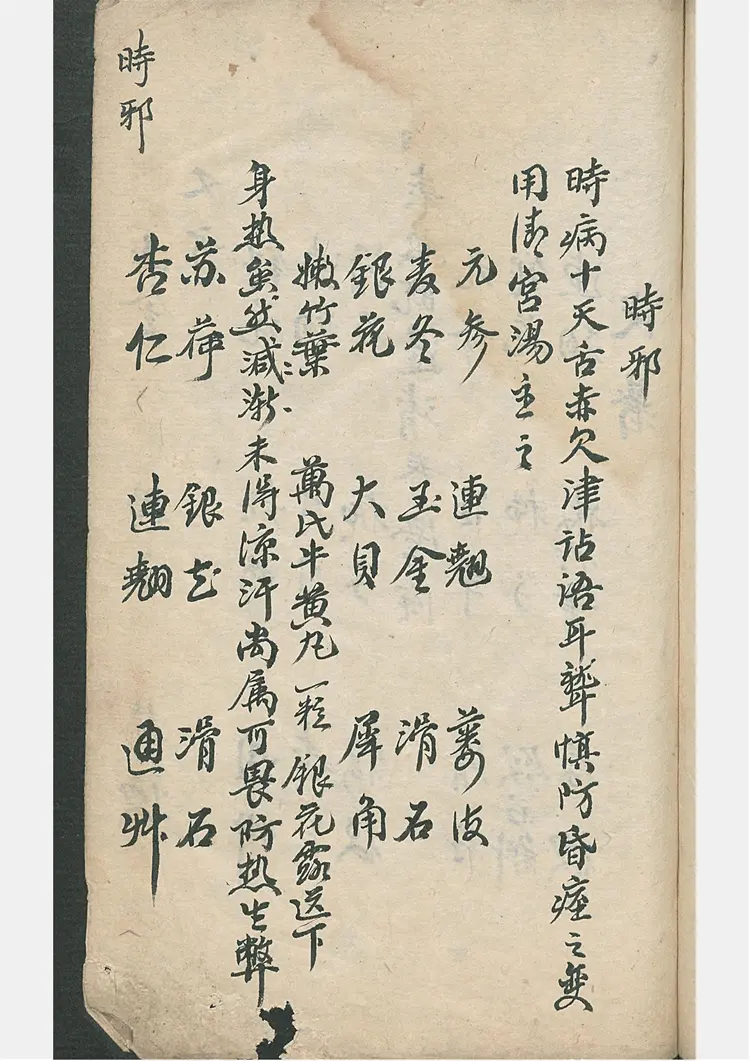 時邪
時病十天舌赤欠津讝语耳聋慎防昏痉之变
用清宫湯主之
元参 連翘 蒌皮
麦冬 玉金 滑石
銀花 大貝 犀角
嫩竹葉 萬氏牛黄丸一粒 銀花露送下
身热虽然減漸未得凉汗尚属可畏防热生弊
苏荷 銀花 滑石
杏仁 連翘 通艸
時邪